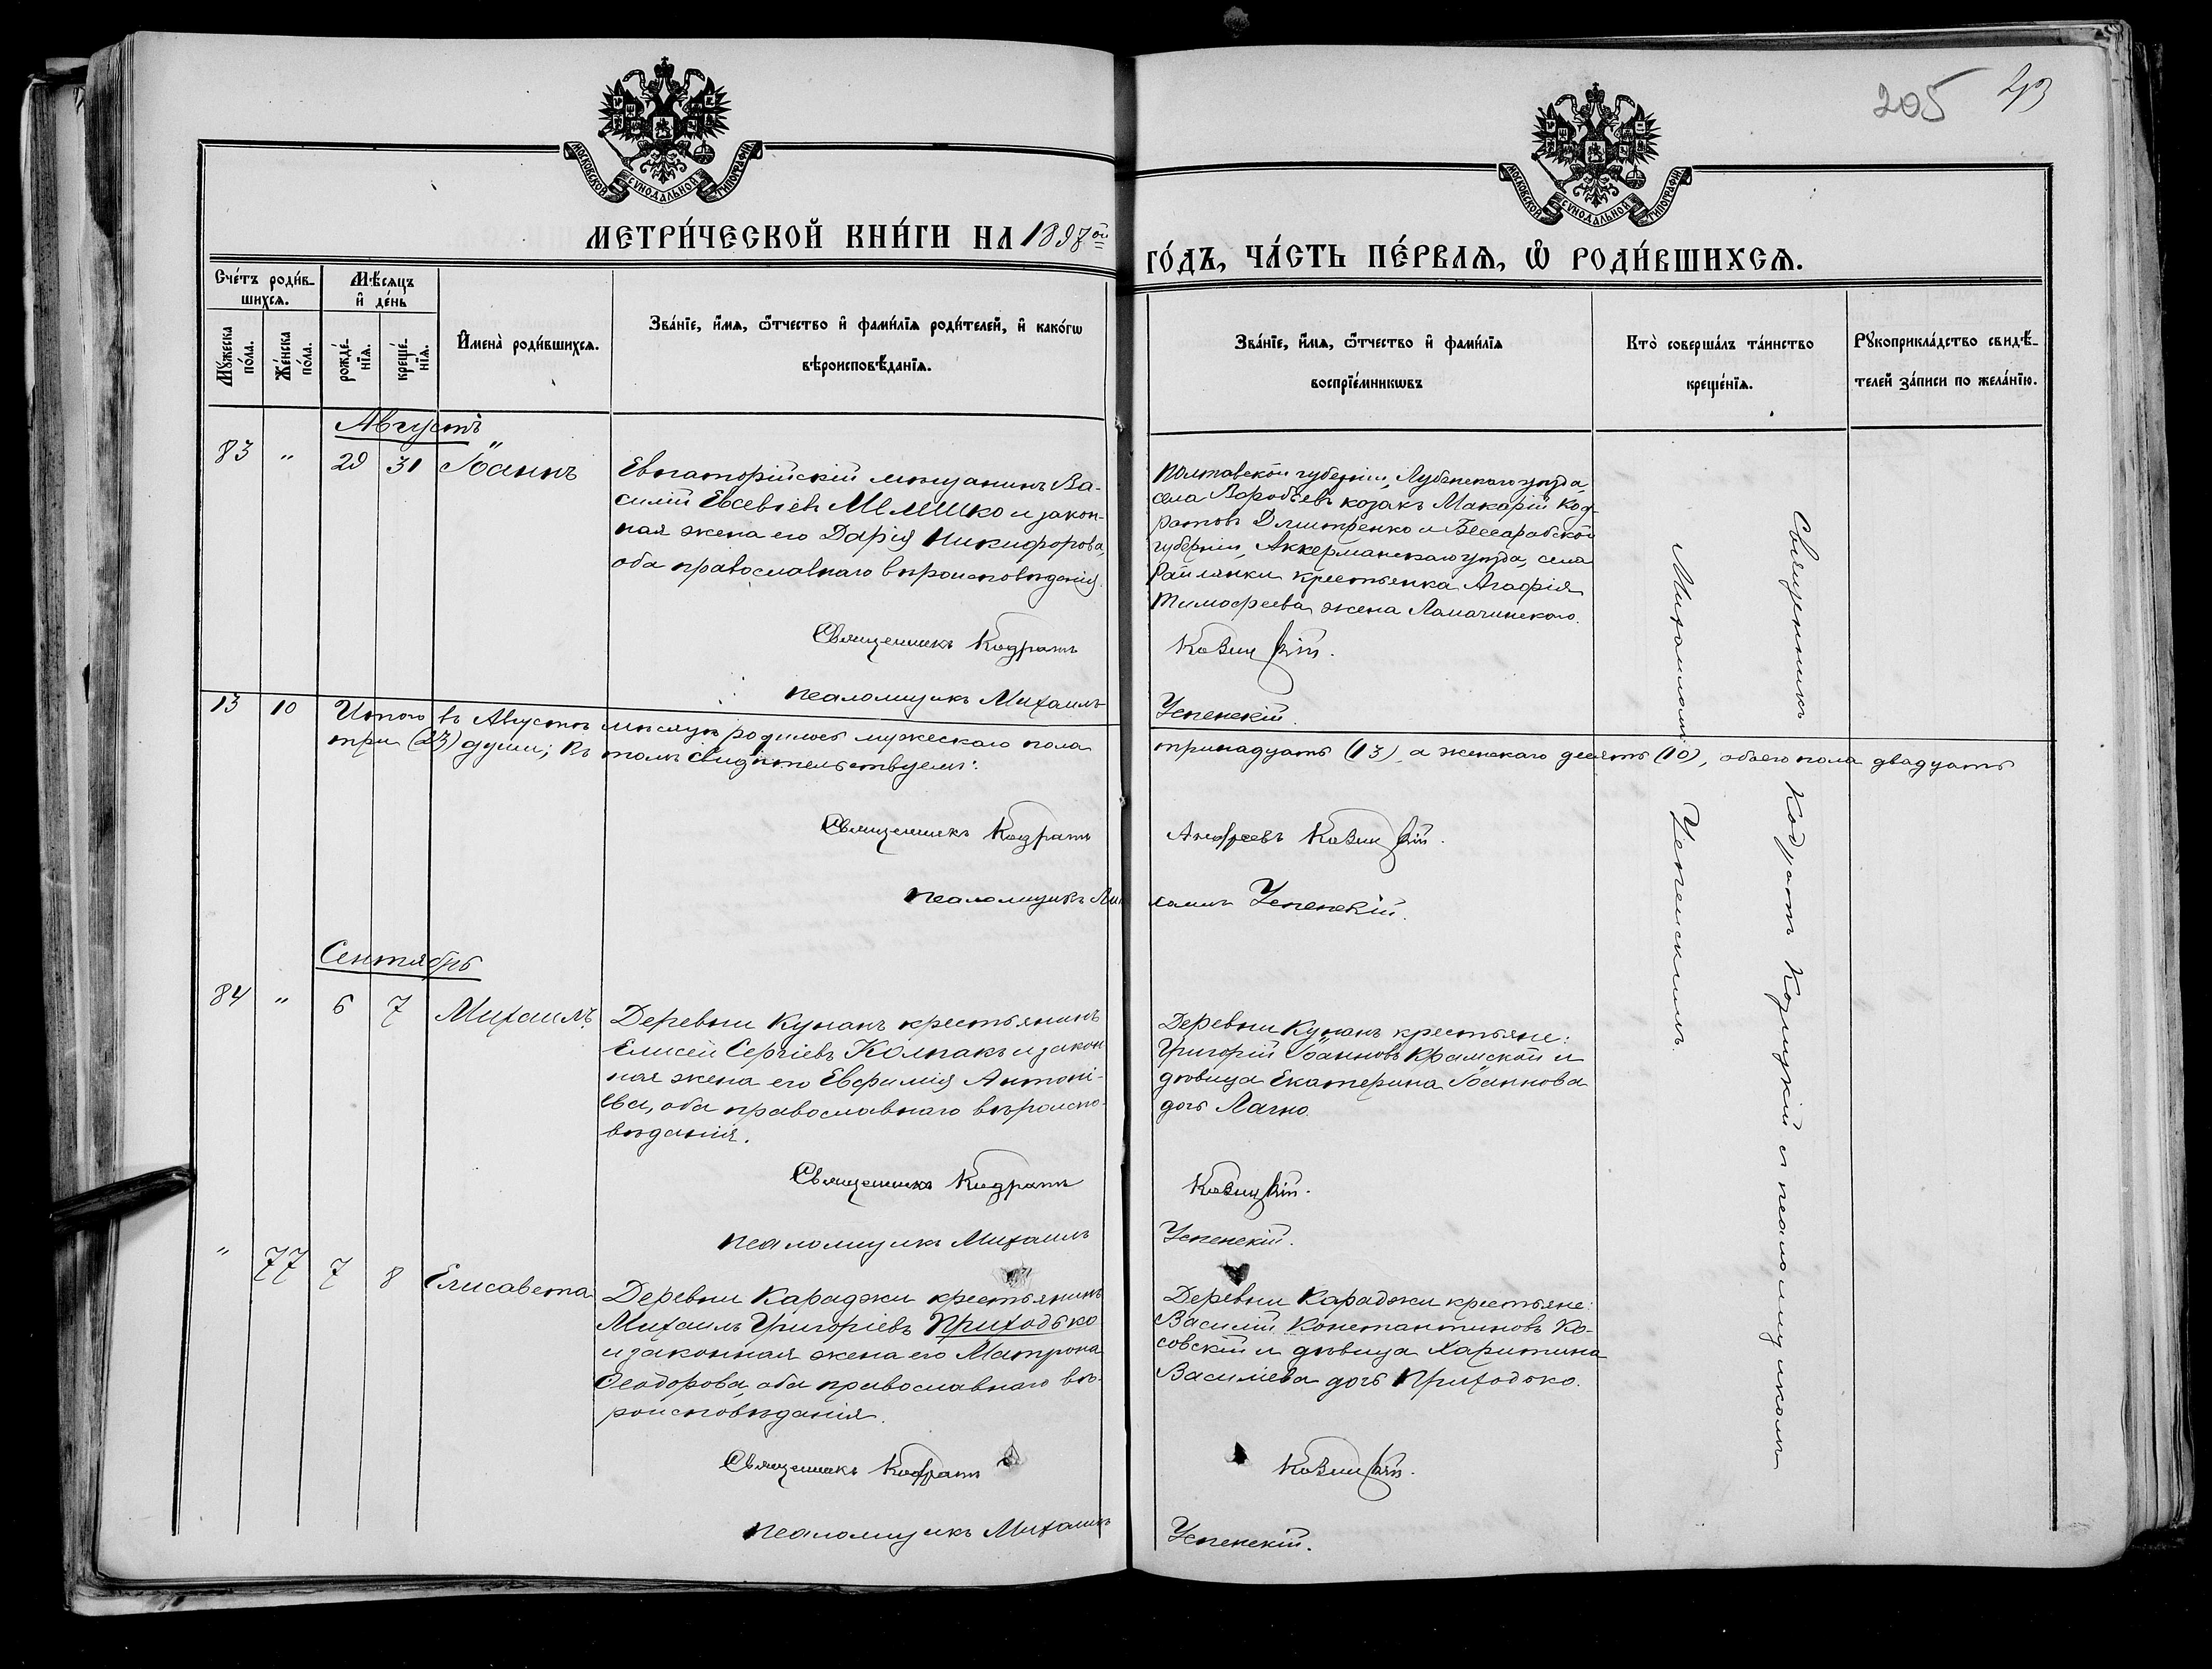 205
МОСКОВСКОЙ СѴНОДАЛЬНОЙ ТИПОГРАФІИ
МОСКОВСКОЙ СѴНОДАЛЬНОЙ ТИПОГРАФІИ
МЕТРИ́ЧЕСКОЙ КНИ́ГИ НА 1897 ой
ГО́ДЪ, ЧА́СТЬ ПЕ́РВАѦ, Ѡ҆ РОДИ́ВШИХСѦ.
Сче́тъ роди́в-
шихсѧ.
Мѣ́сѧцъ
и҆ де́нь
Мꙋ́жеска
по́ла.
Же́нска
по́ла.
рожде́-
нїѧ.
креще́-
нїѧ.
И҆мена̀ роди́вшихсѧ.
Зва́нїе, и҆́мѧ, ѻ҆́тчество и҆ фами́лїѧ роди́телей, и҆ како́гѡ
вѣроисповѣ́данїѧ.
Зва́нїе, и҆́мѧ, ѻ҆́тчество и҆ фами́лїѧ
воспрїе́мникѡвъ
Кто̀ соверша́лъ та́инство
креще́нїѧ.
Рꙋкоприкла́дство свидѣ́-
телей за́писи по жела́нїю.
Августъ
83 " 29 31 Іоаннъ
Евпаторійскій мещанинъ Ва-
силій Евсевіевъ
и закон-
ная жена его Дарія Никифорова,
оба православнаго вѣроисповѣданія.
Священникъ Кодратъ
псаломщикъ Михаилъ
Полтавской губерніи, Лубенскаго уѣзда,
села козакъ Макарій Код-
ратовъ Дмитренко и Бессарабской
губерніи, Аккерманскаго уѣзда, села
Райлянки крестьянка Агафія
Тимофеева жена Ламачинскаго.
Козицкій.
Успенскій.
13 10 Итого въ Августѣ мѣсяцѣ родилось мужескаго пола
тринадцать (13), а женскаго десять (10), обоего пола двадцать
три (23) души; въ томъ свидѣтельствуемъ:
Священникъ Кодратъ Андреевъ Козицкій.
псаломщикъ Михаилъ Успенскій.
Сентябрь
84 " 6 7 Михаилъ.
Деревни Кунанъ крестьянинъ
Елисей Сергіевъ Колпакъ и закон
ная жена его Евфимія Антоні-
ева, оба православнаго вѣроиспо-
вѣданія.
Священникъ Кодратъ
псаломщикъ Михаилъ
Деревни Кунанъ крестьяне:
Григорій Іоанновъ Крамской и
дѣвица Екатерина Іоаннова
дочь Лагно.
Козицкій.
Успенскій.
" 77 7 8 Елисавета
Деревни Караджи крестьянинъ
Михаилъ Григоріевъ Приходько
и законная жена его Матрона
Ѳеодорова, оба православнаго вѣ-
роисповѣданія.
Священникъ Кодратъ
псаломщикъ Михаилъ
Деревни Караджи крестьяне:
Василій Константиновъ Ко-
совскій и дѣвица Харитина
Василіева дочь Приходько.
Козицкій.
Успенскій.
Священникъ Кодратъ Козицкій и псаломщикомъ
Михаиломъ Успенскимъ.